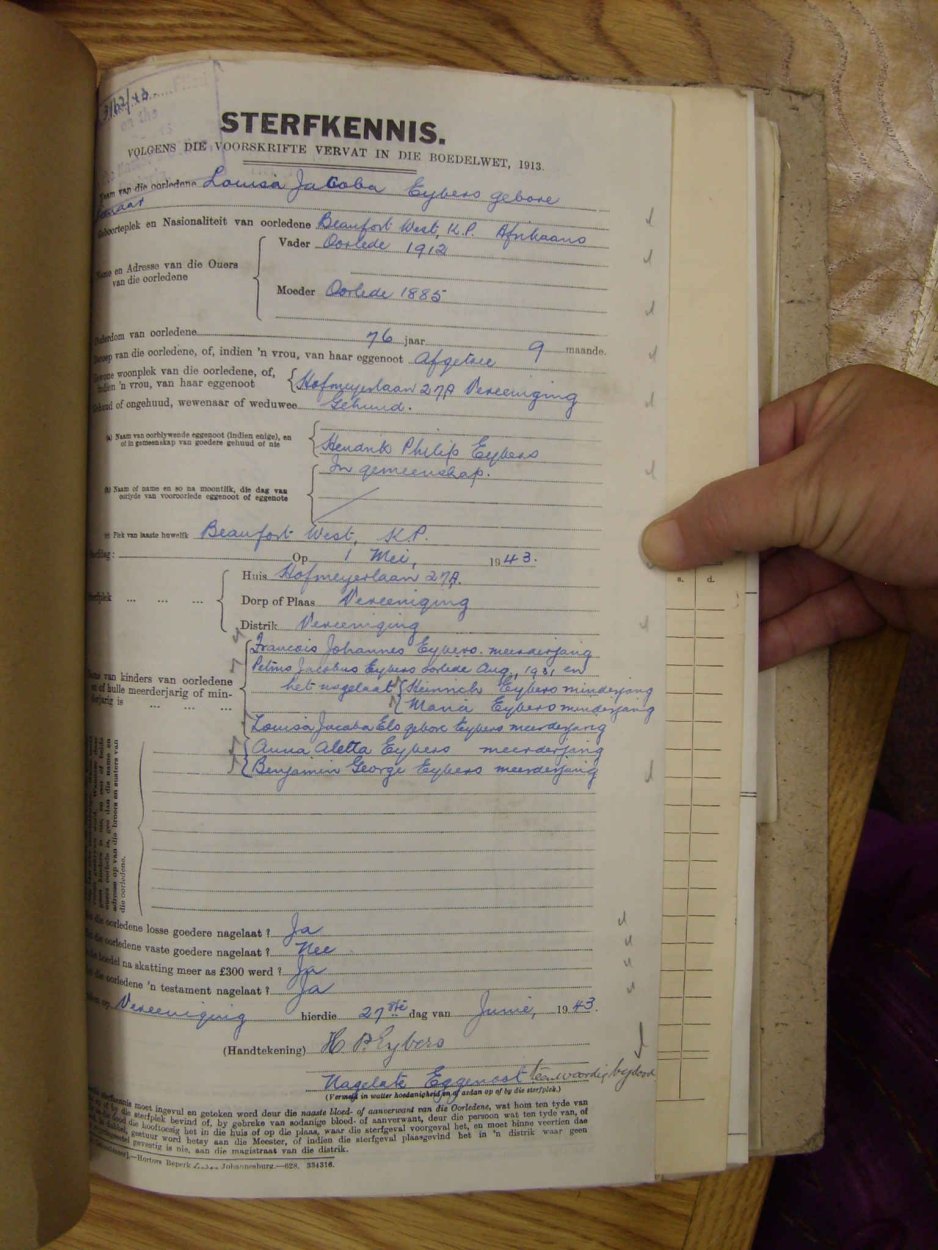 3162/43
STERFKENNIS.
VOLGENS DIE VOORSKRIFTE VERVAT IN DIE BOEDELWET, 1913.
Naam van die oorledene Louisa Jacoba Eybers gebore
Geboorteplek en Nasionaliteit van oorledene Beaufort West, K.P. Afrikaans
Vader Oorlede 1912
Name en Adresse van die Ouers
van die oorledene
Moeder Oorlede 1885
Ouderdom van oorledene 76 jaar 9 maande.
Beroep van die oorledene, of, indien 'n vrou, van haar eggenoot Afgetree
Gewone woonplek van die oorledene, of,
indien 'n vrou, van haar eggenoot Hofmeyerlaan 27A Vereeniging
Gehud of ongehuud, wewenaar of weduwee Gehuud.
(a) Naam van oorblywende eggenoot (indien enige), en
of in gemeenskap van goedere gehuud of nie
Hendrik Philip Eybers
In gemeenskap.
(b) Naam of name en so na moontlik, die dag van
oorlyde van vooroorlede eggenoot of eggenote
(c) Plek van laaste huwelik Beaufort West, K.P.
Op 1 Mei, 1943.
Huis Hofmeyerlaan 27A.
Sterfplek ... ... ... Dorp of Plaas Vereeniging
Distrik Vereeniging
Francois Johannes Eybers. meerderjarig
Petrus Jacobus Eybers oorlede Aug, 1931 en
Name van kinders van oorledene
en of hulle meerderjarig of min-
derjarig is ... ... ...
het nagelaat Heinrich Eybers minderjarig
Maria Eybers minderjarig
Louisa Jacoba Els gebore Eybers meerderjarig
Anna Aletta Eybers meerderjarig
Benjamin George Eybers meerderjarig
adresse op van die broers en susters van
die oorledene.
die oorledene losse goedere nagelaat? Ja
die oorledene vaste goedere nagelaat? Nee
boedel na skatting meer as £300 werd? Ja
die oorledene 'n testament nagelaat? Ja
op Vereeniging hierdie 27ste dag van Junie, 1943.
(Handtekening) H P Eybers
Nagelate Eggenoot teenwoordig by dood
(Vermeld in watter hoedanigheid en of aldan op of by die sterfplek.)
sterfkennis moet ingevul en geteken word deur die naaste bloed- of aanverwant van die Oorledene, wat hom ten tyde van
by die sterfplek bevind of, by gebreke van sodanige bloed- of aanverwant, deur die persoon wat ten tyde van, of
die hooftoesig het in die huis of op die plaas, waar die sterfgeval voorgeval het, en moet binne veertien dae
gestuur word hetsy aan die Meester, of indien die sterfgeval plaasgevind het in 'n distrik waar geen
gevestig is nie, aan die magistraat van die distrik.
Hortors Beperk Johannesburg.—628. 334316.
s. d.